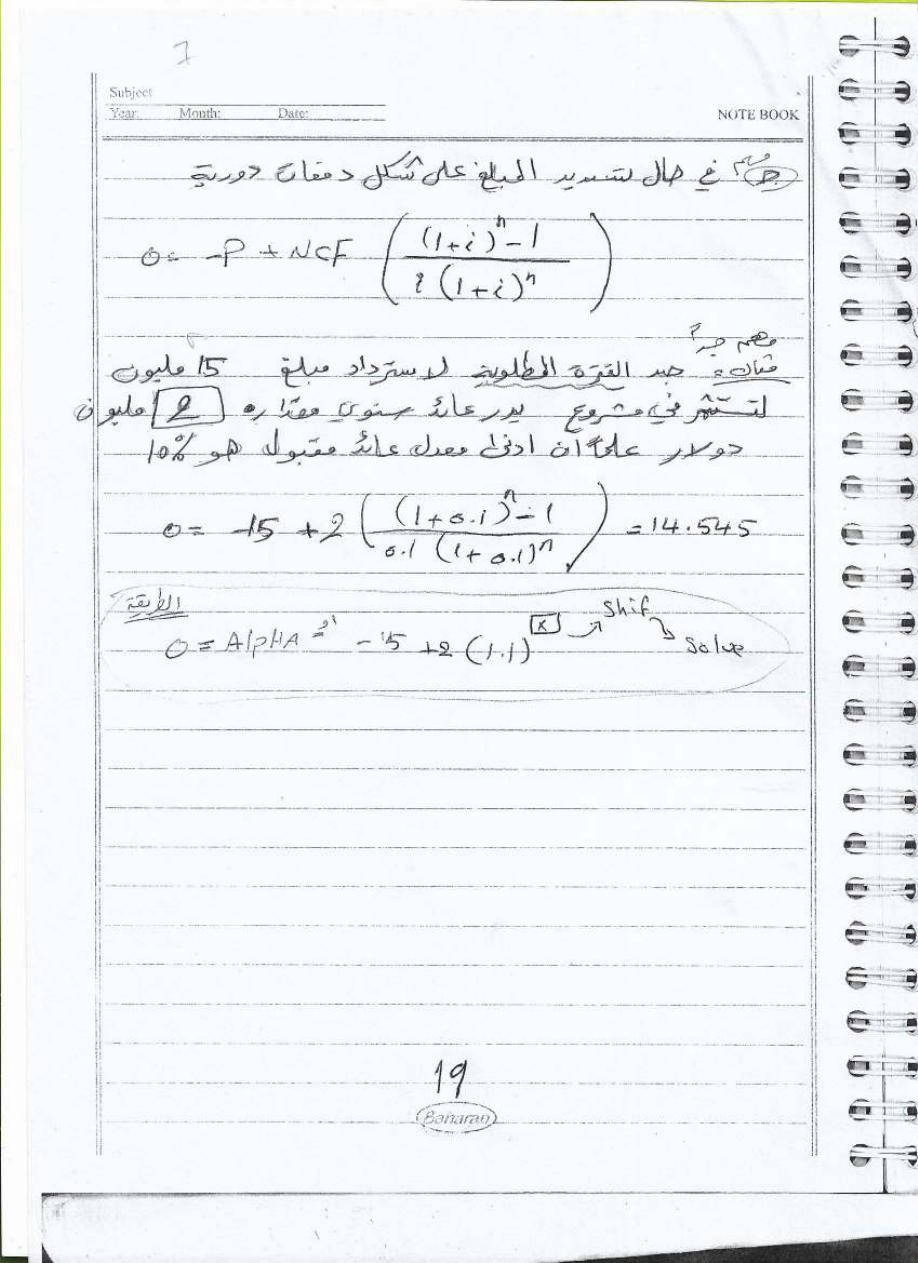 Subject
Year: Month: Date:
NOTE BOOK
مهم
ج) في حال تسديد المبلغ على شكل دفعات دورية
0 = -P + NCF ( (1+i)^n - 1 / i (1+i)^n )
مهم جداً
مثال: جد الفترة المطلوبة لاسترداد مبلغ 15 مليون
لتستثمر في مشروع يدر عائد سنوي مقداره 2 مليون
دولار علماً ان ادنى معدل عائد مقبول هو 10%
0 = -15 + 2 ( (1+0.1)^n - 1 / 0.1 (1+0.1)^n ) = 14.545
الطريقة
0 = AlpHA = -15 +2 (1.1)^x Shif Solve
19
Baharan